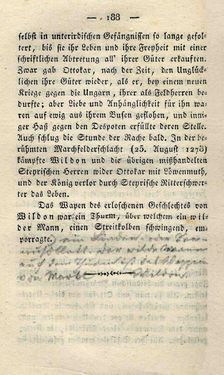 — 188 —
selbst in unterirdischen Gefängnissen so lange gefol-
tert, bis sie ihr Leben und ihre Freyheit mit einer
schriftlichen Abtretung all' ihrer Güter erkauften.
Zwar gab Ottokar, nach der Zeit, den Unglück-
lichen ihre Güter wieder, als er, bey dem neuen
Kriege gegen die Ungarn, ihrer als Feldherren be-
durfte; aber Liebe und Anhänglichkeit für ihn wa-
ren auf ewig aus ihrem Busen geflohen, und inni-
ger Haß gegen den Despoten erfüllte deren Stelle.
Auch schlug die Stunde der Rache bald. In der be-
rühmten Marchfelderschlacht (25. August 1278)
kämpfte Wildon und die übrigen mißhandelten
Steyrischen Herren wider Ottokar mit Löwenmuth,
und der König verlor durch Steyrische Ritterschwer-
ter das Leben.
Das Wapen des erloschenen Geschlechtes von
Wildon war ein Thurm, über welchem ein wil-
der Mann, einen Streitkolben schwingend, em-
porragte.